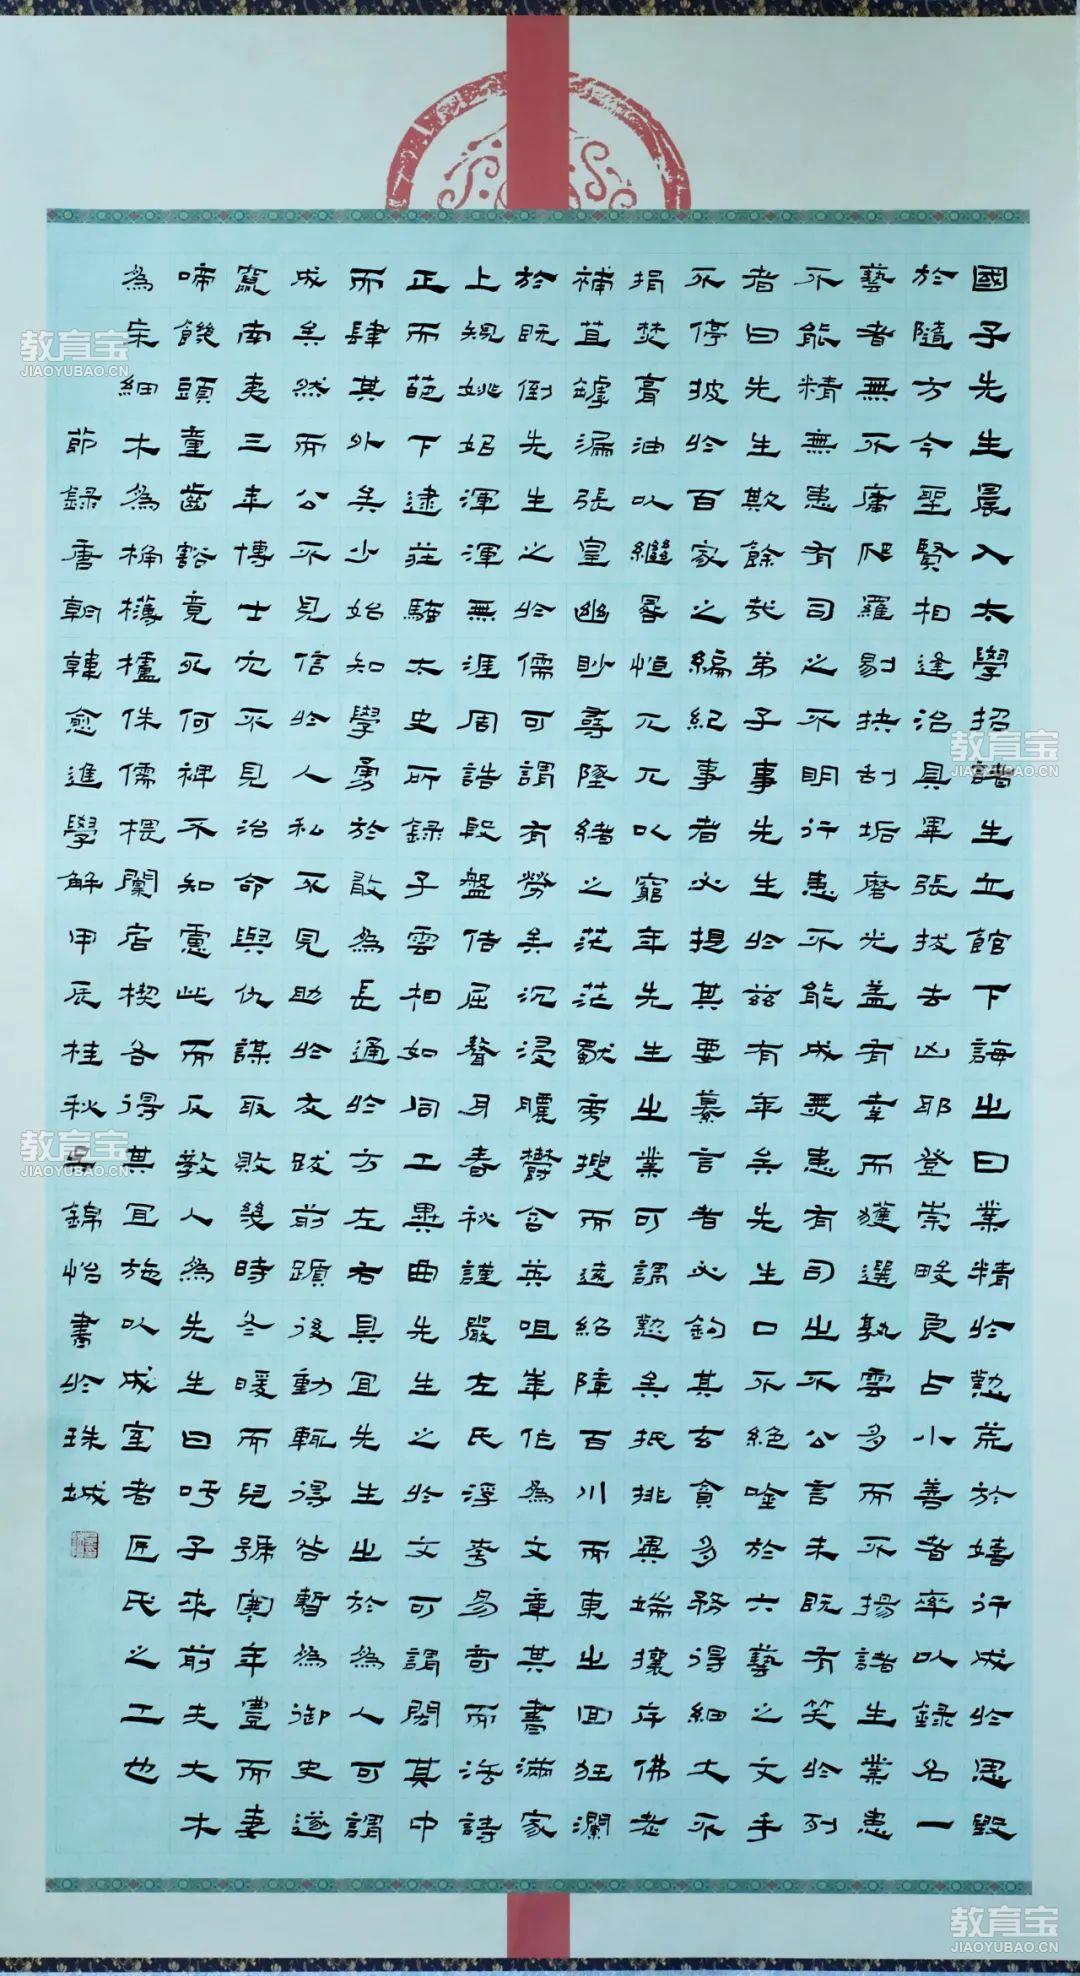 國子先生晨入太學招諸生立館下誨之曰業精於勤荒於嬉行成於思毀
於隨方今聖賢相逢治具畢張拔去凶邪登崇畯良占小善者率以錄名一
藝者無不庸爬羅剔抉刮垢磨光蓋有幸而獲選孰雲多而不揚諸生業患
不能精無患有司之不明行患不能成無患有司之不公言未既有笑於列
者曰先生欺餘哉弟子事先生於茲有年矣先生口不絕唫於六藝之文手
不停披於百家之編紀事者必提其要纂言者必鉤其玄貪多務得細大不
捐焚膏油以繼晷恒兀兀以窮年先生之業可謂勤矣抵排異端攘斥佛老
補苴罅漏張皇幽眇尋墜緒之茫茫獨旁搜而遠紹障百川而東之回狂瀾
於既倒先生之於儒可謂有勞矣沉浸醲鬱含英咀華作為文章其書滿家
上規姚姒渾渾無涯周誥殷盤佶屈聱牙春秋謹嚴左氏浮誇易奇而法詩
正而葩下逮莊騷太史所錄子雲相如同工異曲先生之於文可謂閎其中
而肆其外矣少始知學勇於敢為長通於方左右具宜先生之於為人可謂
成矣然而公不見信於人私不見助於友跋前躓後動輒得咎暫為御史遂
竄南夷三年博士冗不見治命與仇謀取敗幾時冬暖而兒號寒年豐而妻
啼饑頭童齒豁竟死何裨不知慮此而反教人為先生曰吁子來前夫大木
為杗細木為桷欂櫨侏儒椳闑扂楔各得其宜施以成室者匠氏之工也
節錄唐朝韓愈進學解甲辰桂秋吳錦怡書於珠城
教育宝
JIAOYUBAO.CN
教育宝
JIAOYUBAO.CN
教育宝
JIAOYUBAO.CN
教育宝
JIAOYUBAO.CN